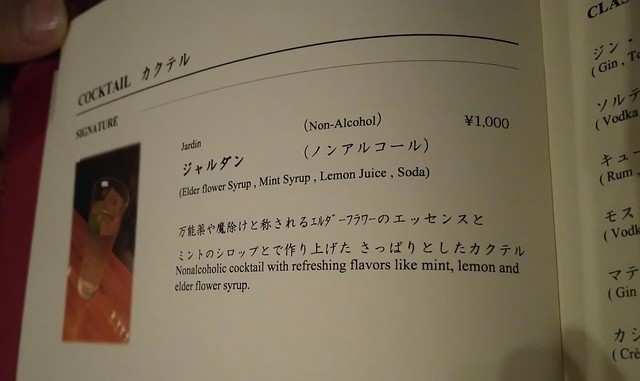 COCKTAIL カクテル
SIGNATURE
Jardin (Non-Alcohol) ¥1,000
ジャルダン (ノンアルコール)
(Elder flower Syrup , Mint Syrup , Lemon Juice , Soda)
万能薬や魔除けと称されるｴﾙﾀﾞｰフラワーのエッセンスと
ミントのシロップとで作り上げた さっぱりとしたカクテル
Nonalcoholic cocktail with refreshing flavors like mint, lemon and
elder flower syrup.
CLAS
ジン・
( Gin , To
ソルテ
( Vodka
キュー
( Rum ,
モス
( Vodk
マテ
( Gin
カシ
( Crè